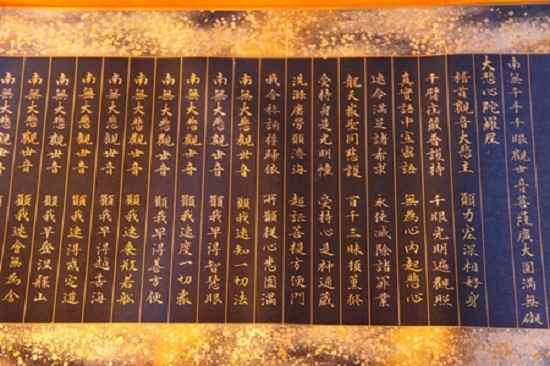 南無千手千眼觀世音菩薩廣大圓滿無礙
大悲心陀羅尼
稽首觀音大悲主 願力宏深相好身
千臂莊嚴普護持 千眼光明遍觀照
真實語中宣密語 無為心內起悲心
速令滿足諸希求 永使滅除諸罪業
龍天眾聖同慈護 百千三昧頓薰修
受持身是光明幢 受持心是神通藏
洗滌塵勞願濟海 超證菩提方便門
我今稱誦誓歸依 所願從心悉圓滿
南無大悲觀世音 願我速知一切法
南無大悲觀世音 願我早得智慧眼
南無大悲觀世音 願我速度一切眾
南無大悲觀世音 願我早得善方便
南無大悲觀世音 願我速乘般若船
南無大悲觀世音 願我早得越苦海
南無大悲觀世音 願我速得戒定道
南無大悲觀世音 願我早登涅槃山
南無大悲觀世音 願我速會無為舍